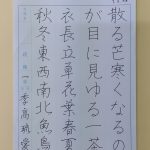 散る芒寒くなるの
が目に見ゆる一茶
衣長立車花葉春夏
秋冬東西南北魚鳥